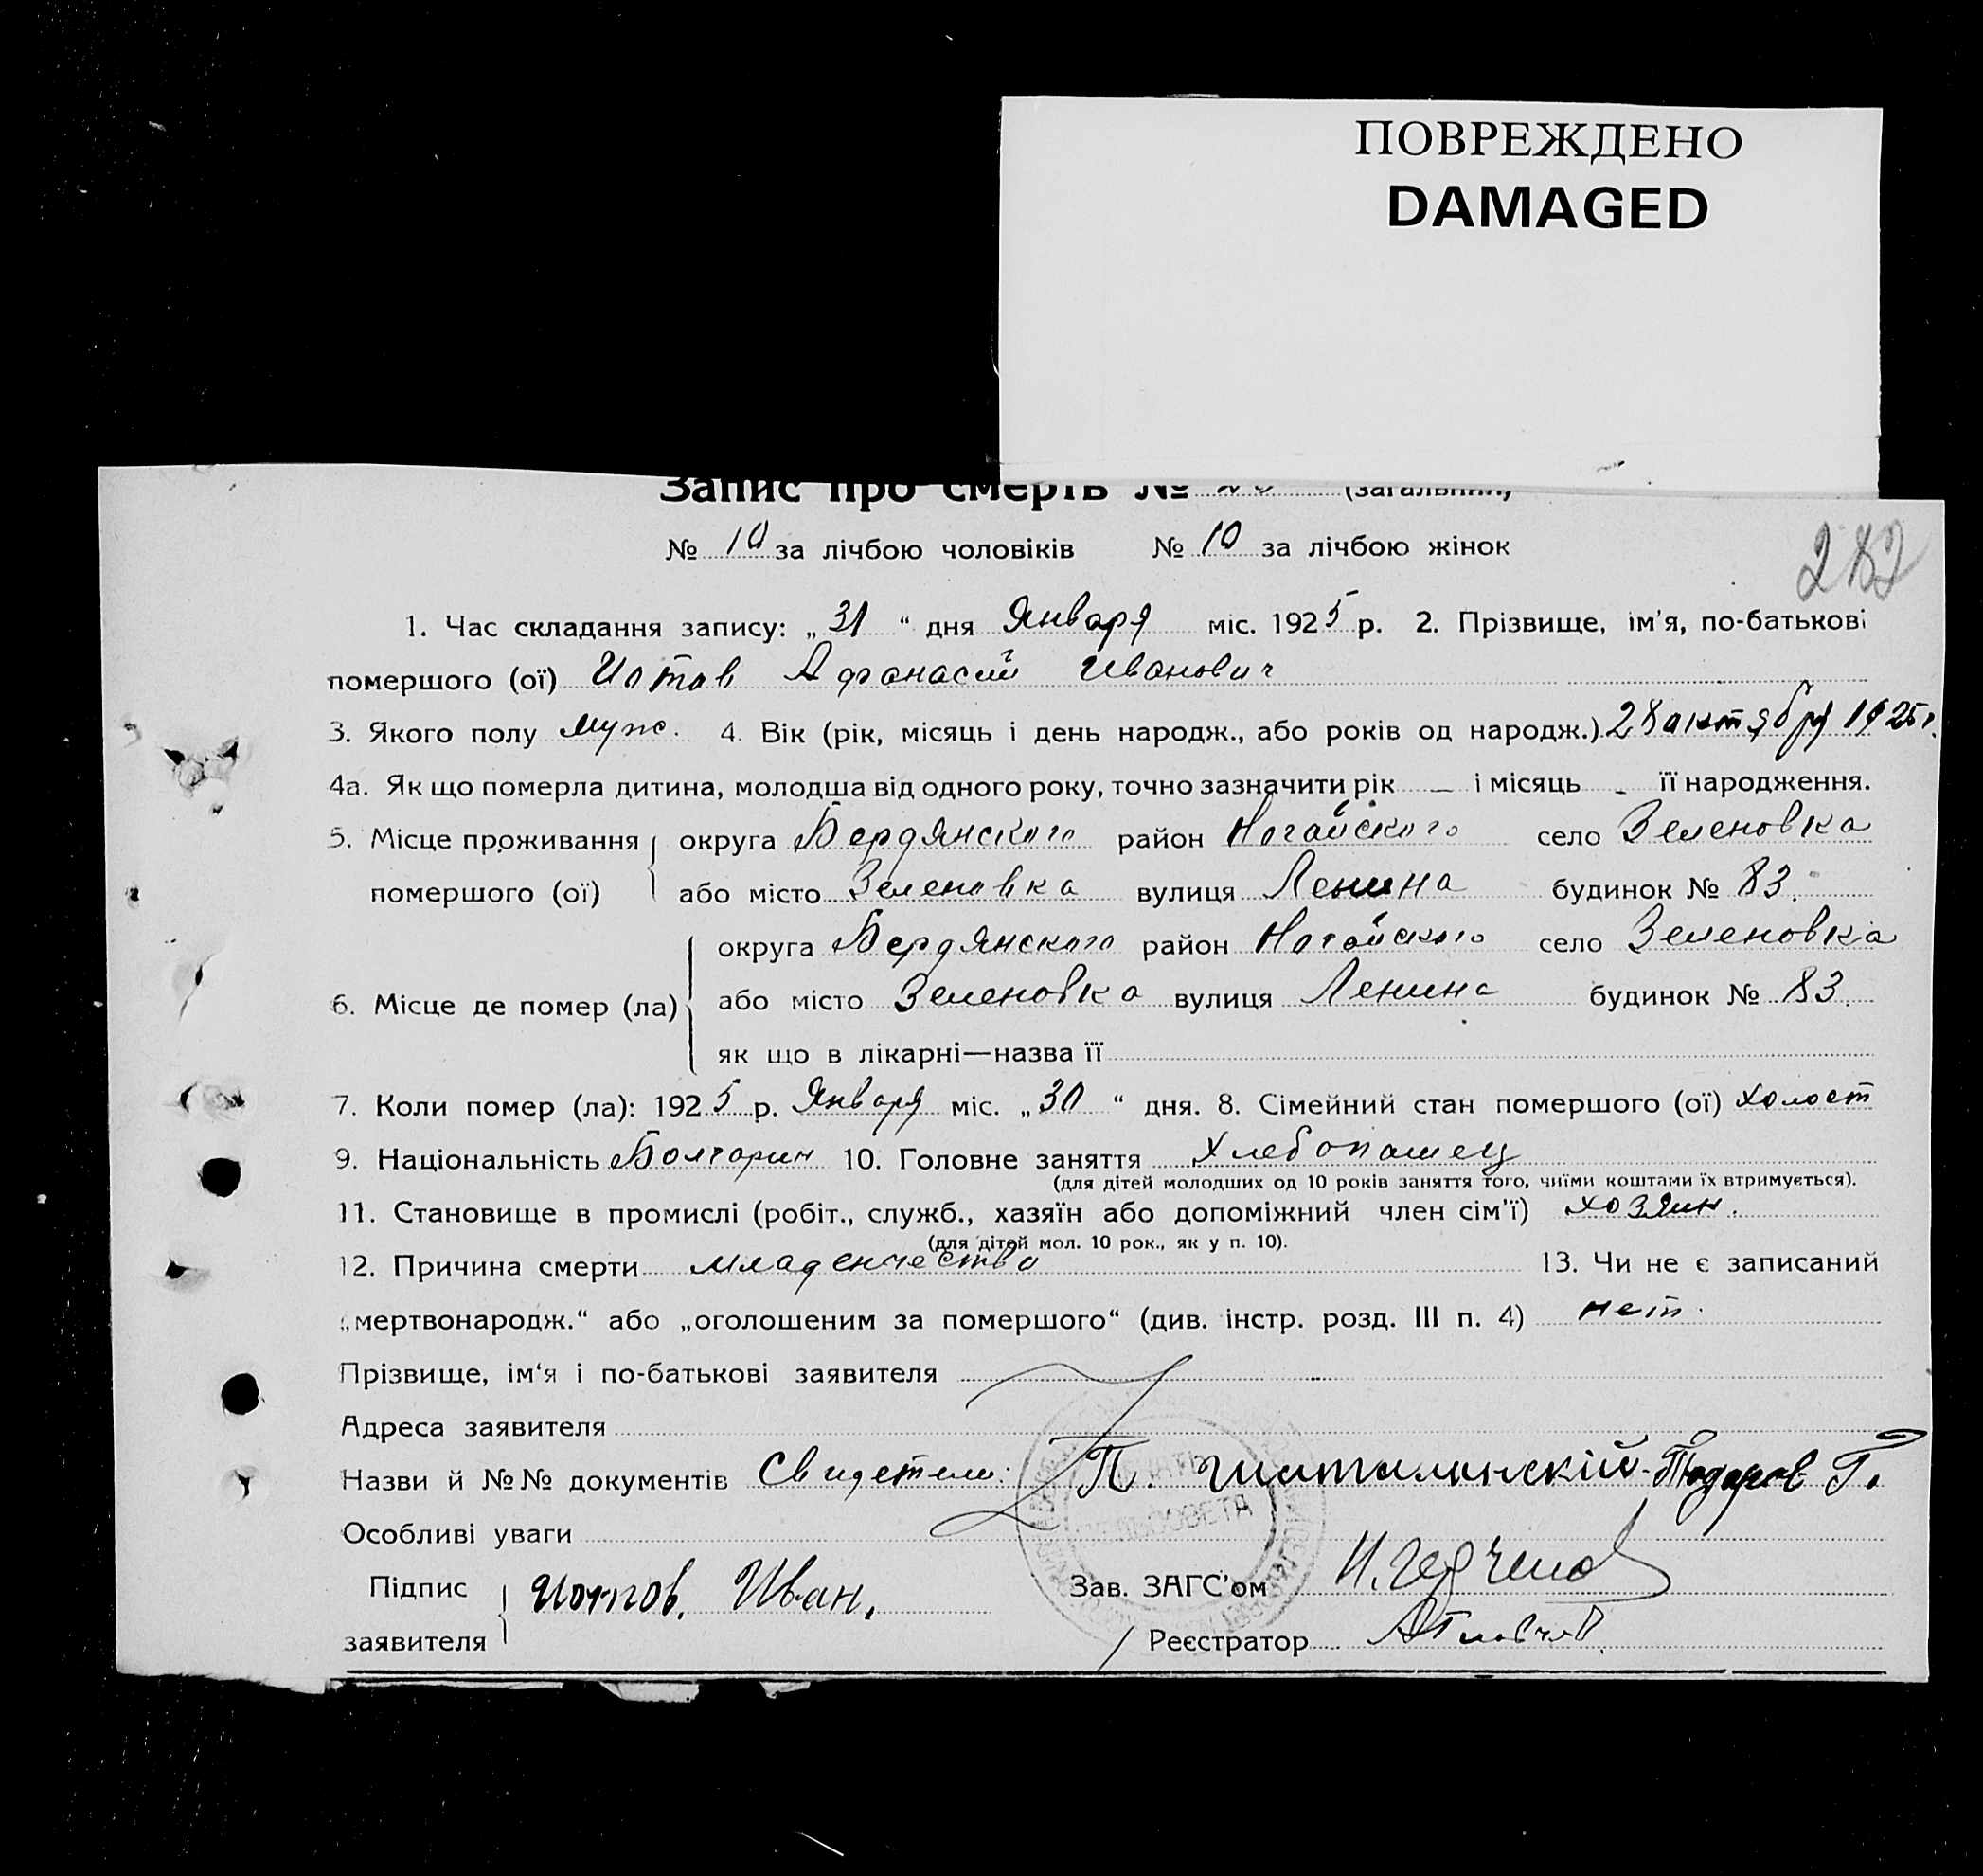 ПОВРЕЖДЕНО
DAMAGED
Запис про смерть № (загальний)
№ 10 за лічбою чоловіків № 10 за лічбою жінок
1. Час складання запису: „31“ дня Января міс. 1925 р. 2. Прізвище, ім'я, по-батькові
помершого (ої) Иотов Афанасий Иванович
3. Якого полу муж. 4. Вік (рік, місяць і день народж., або років од народж.) 28 октября 1925 г.
4а. Як що померла дитина, молодша від одного року, точно зазначити рік — і місяць - її народження.
5. Місце проживання округа Бердянского район Ногайского село Зеленовка
помершого (ої) або місто Зеленовка вулиця Ленина будинок № 83.
округа Бердянского район Ногайского село Зеленовка
6. Місце де помер (ла) або місто Зеленовка вулиця Ленина будинок № 83
як що в лікарні—назва її
7. Коли помер (ла): 1925 р. Января міс. „30“ дня. 8. Сімейний стан помершого (ої) холост
9. Національність Болгарин 10. Головне заняття Хлебопашец
(для дітей молодших од 10 років заняття того, чиїми коштами їх втримується).
11. Становище в промислі (робіт., служб., хазяїн або допоміжний член сім'ї) хозяин.
(для дітей мол. 10 рок., як у п. 10).
12. Причина смерти младенчество 13. Чи не є записаний
„мертвонародж.“ або „оголошеним за помершого“ (див. інстр. розд. III п. 4) нет.
Прізвище, ім'я і по-батькові заявителя
Адреса заявителя
Назви й №№ документів Свидетели: П. Тодоров Г.
Особливі уваги
Підпис Иотов. Иван. Зав. ЗАГС'ом
заявителя Реєстратор